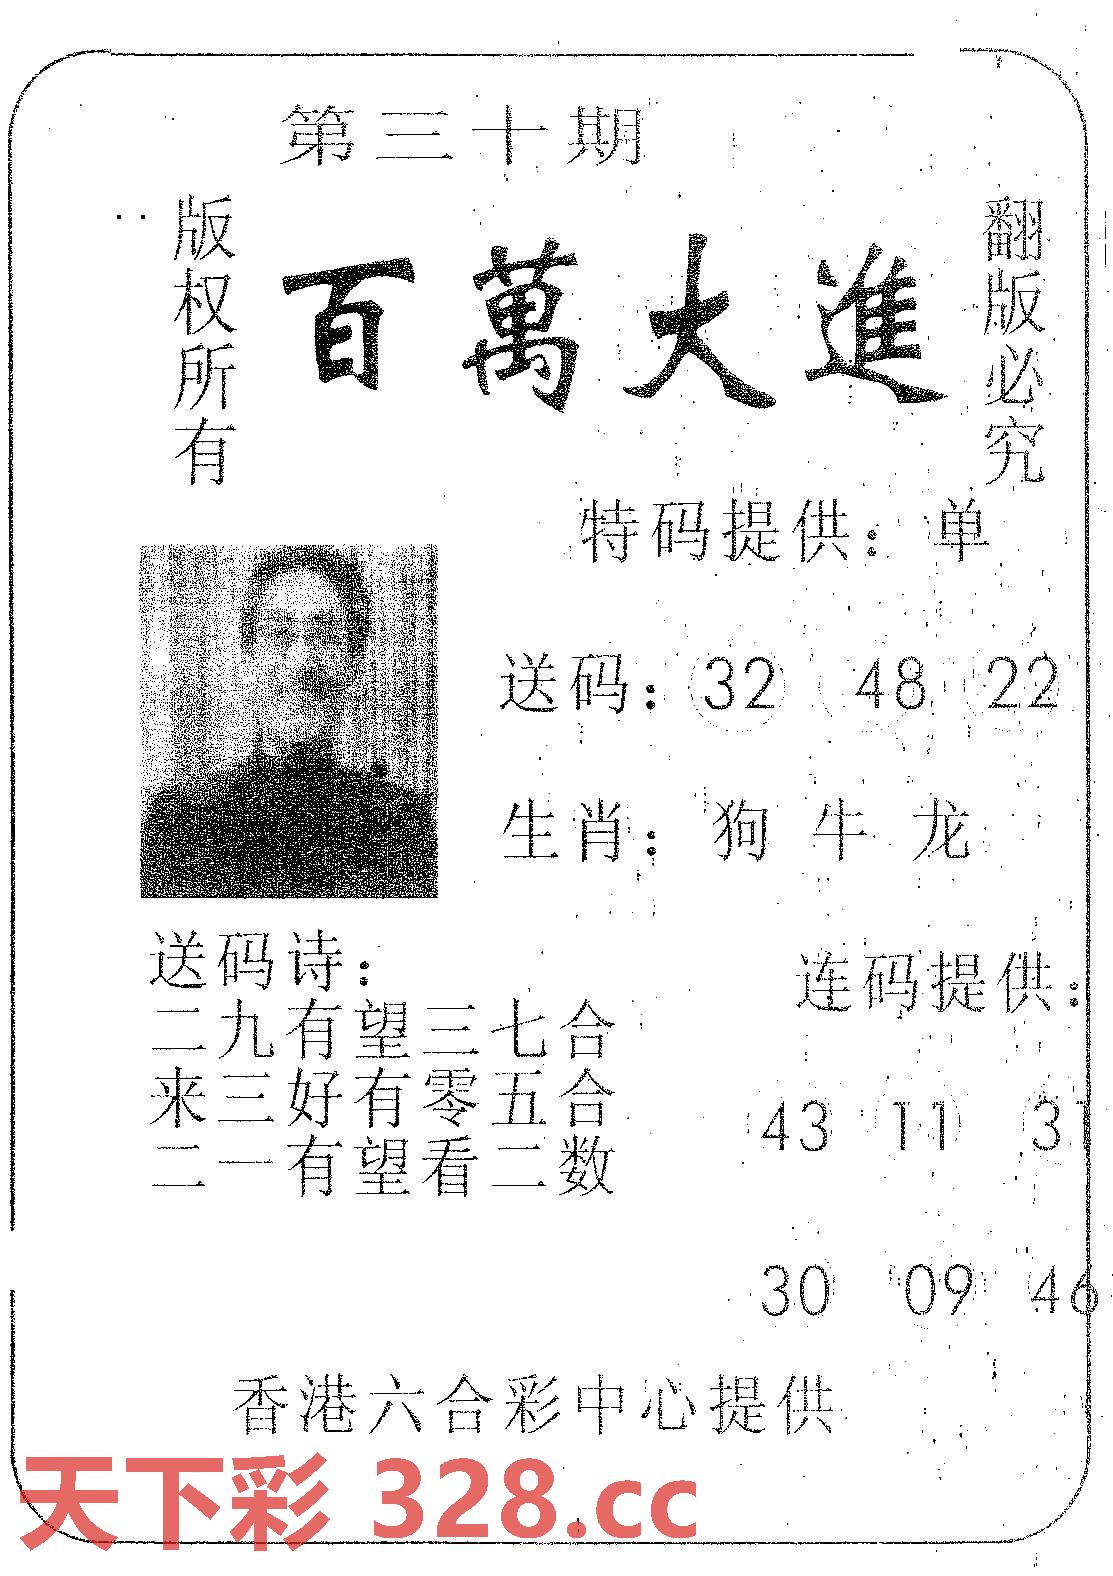 第三十期
版权所有
百萬大進
翻版必究
特码提供：单
送码：32 48 22
生肖：狗 牛 龙
送码诗：
二九有望三七合
来三好有零五合
二一有望看二数
连码提供：
43 11 31
30 09 46
香港六合彩中心提供
天下彩 328.cc